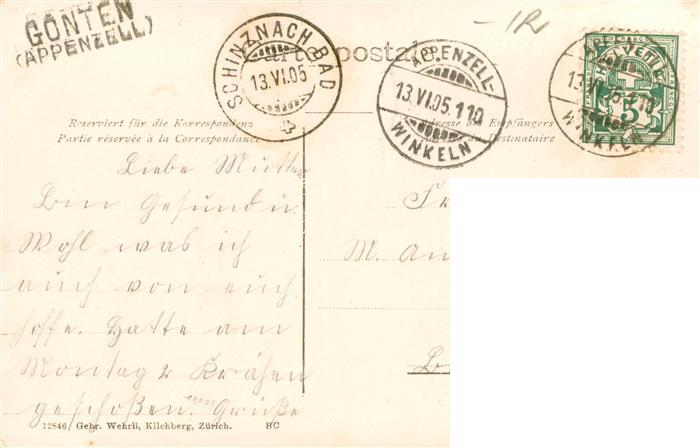 GONTEN
(APPENZELL)
SCHINZNACH BAD
13.VI.05
Carte postale
APPENZELL-
13.VI.05.110
WINKELN
HELVETIA
5
APPENZELL-
13.VI.05.110
WINKELN
Reserviert für die Korrespondenz
Partie réservée à la Correspondance
Adresse des Empfängers
du Destinataire
Liebe Mutter
Bin Gesund u.
Wohl was ich
auch von euch
hoffe. Hatte am
Montag 2 Krähen
geschoßen. Grüße
Fr
M. An
12846 Gebr. Wehrli, Kilchberg, Zürich. BC